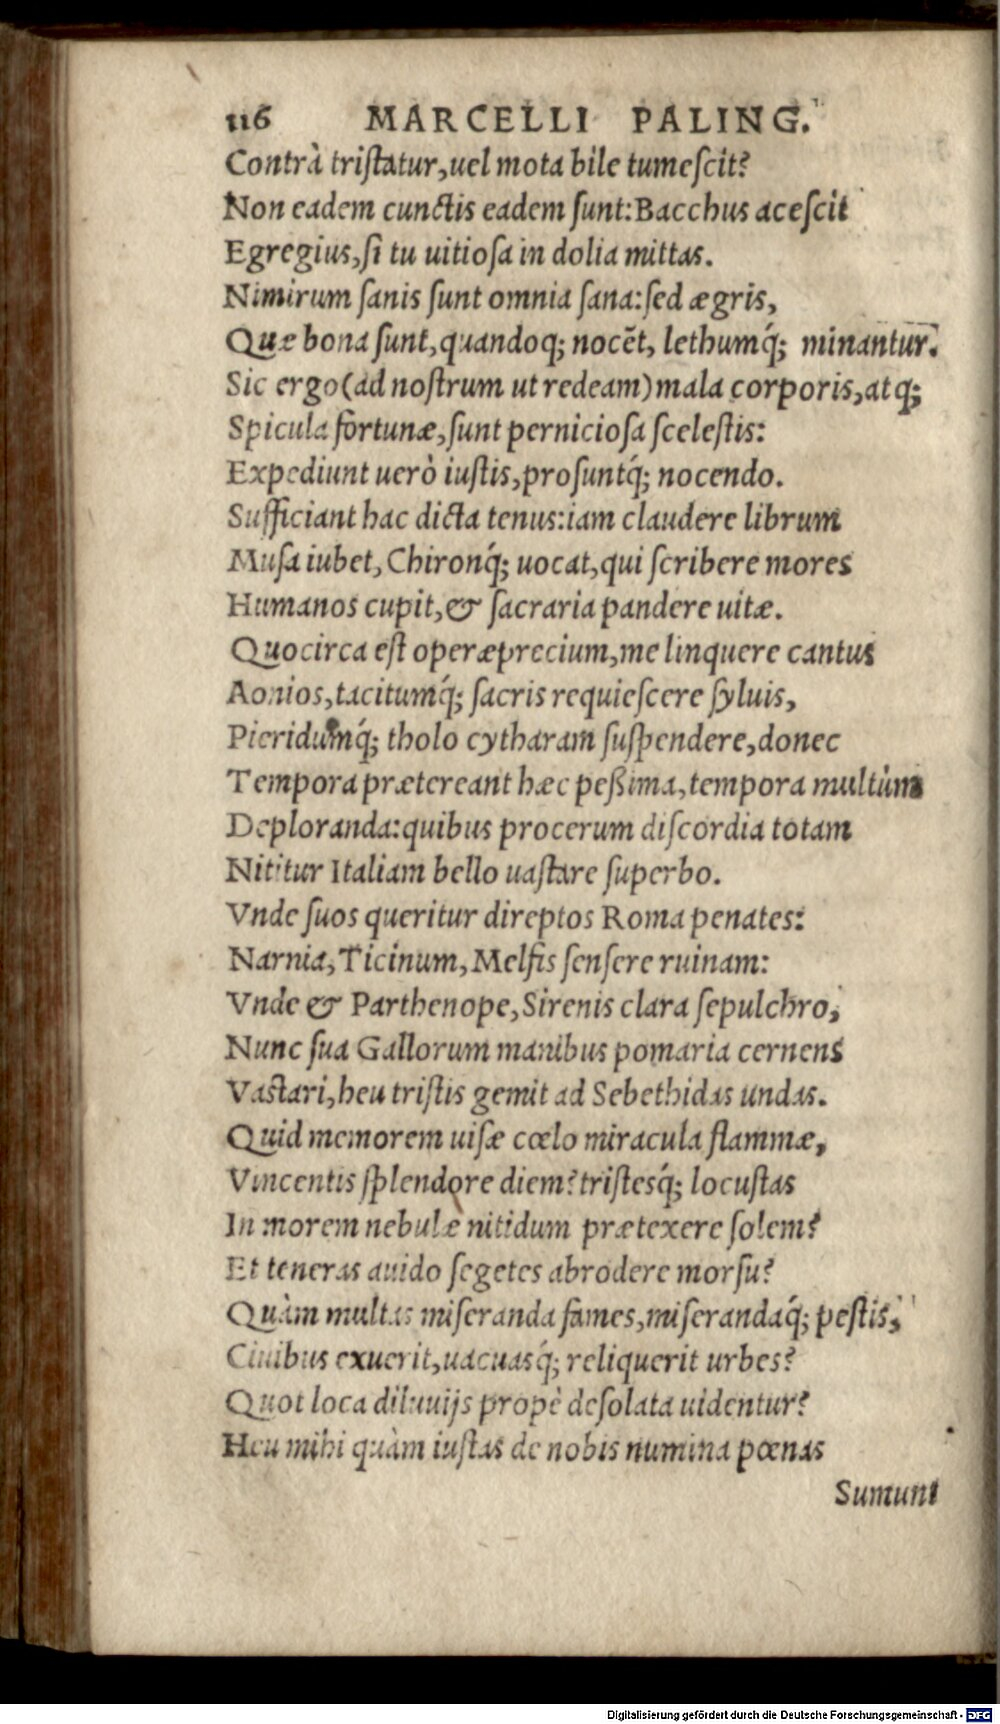 116 MARCELLI PALING.
Contrà triſtatur, uel mota bile tumeſcit?
Non eadem cunctis eadem ſunt: Bacchus aceſcit
Egregius, ſi tu uitioſa in dolia mittas.
Nimirum ſanis ſunt omnia ſana: ſed ægris,
Quæ bona ſunt, quandoq; nocēt, lethumq́; minantur.
Sic ergo (ad noſtrum ut redeam) mala corporis, atq;
Spicula fortunæ, ſunt pernicioſa ſceleſtis:
Expediunt uerò iuſtis, proſuntq́; nocendo.
Sufficiant hac dicta tenus: iam claudere librum
Muſa iubet, Chironq́; uocat, qui ſcribere mores
Humanos cupit, & ſacraria pandere uitæ.
Quocirca eſt operæprecium, me linquere cantus
Aonios, tacitumq́; ſacris requieſcere ſyluis,
Pieridumq́; tholo cytharam ſuſpendere, donec
Tempora prætereant hæc peßima, tempora multùm
Deploranda: quibus procerum diſcordia totam
Nititur Italiam bello uaſtare ſuperbo.
Vnde ſuos queritur direptos Roma penates:
Narnia, Ticinum, Melfis ſenſere ruinam:
Vnde & Parthenope, Sirenis clara ſepulchro,
Nunc ſua Gallorum manibus pomaria cernens
Vaſtari, heu triſtis gemit ad Sebethidas undas.
Quid memorem uiſæ cœlo miracula flammæ,
Vincentis ſplendore diem? triſtesq́; locuſtas
In morem nebulæ nitidum prætexere ſolem?
Et teneras auido ſegetes abrodere morſu?
Quàm multas miſeranda fames, miſerandaq́; peſtis,
Ciuibus exuerit, uacuasq́; reliquerit urbes?
Quot loca diluuijs propè deſolata uidentur?
Heu mihi quàm iuſtas de nobis numina pœnas
Sumunt
Digitalisierung gefördert durch die Deutsche Forschungsgemeinschaft - DFG